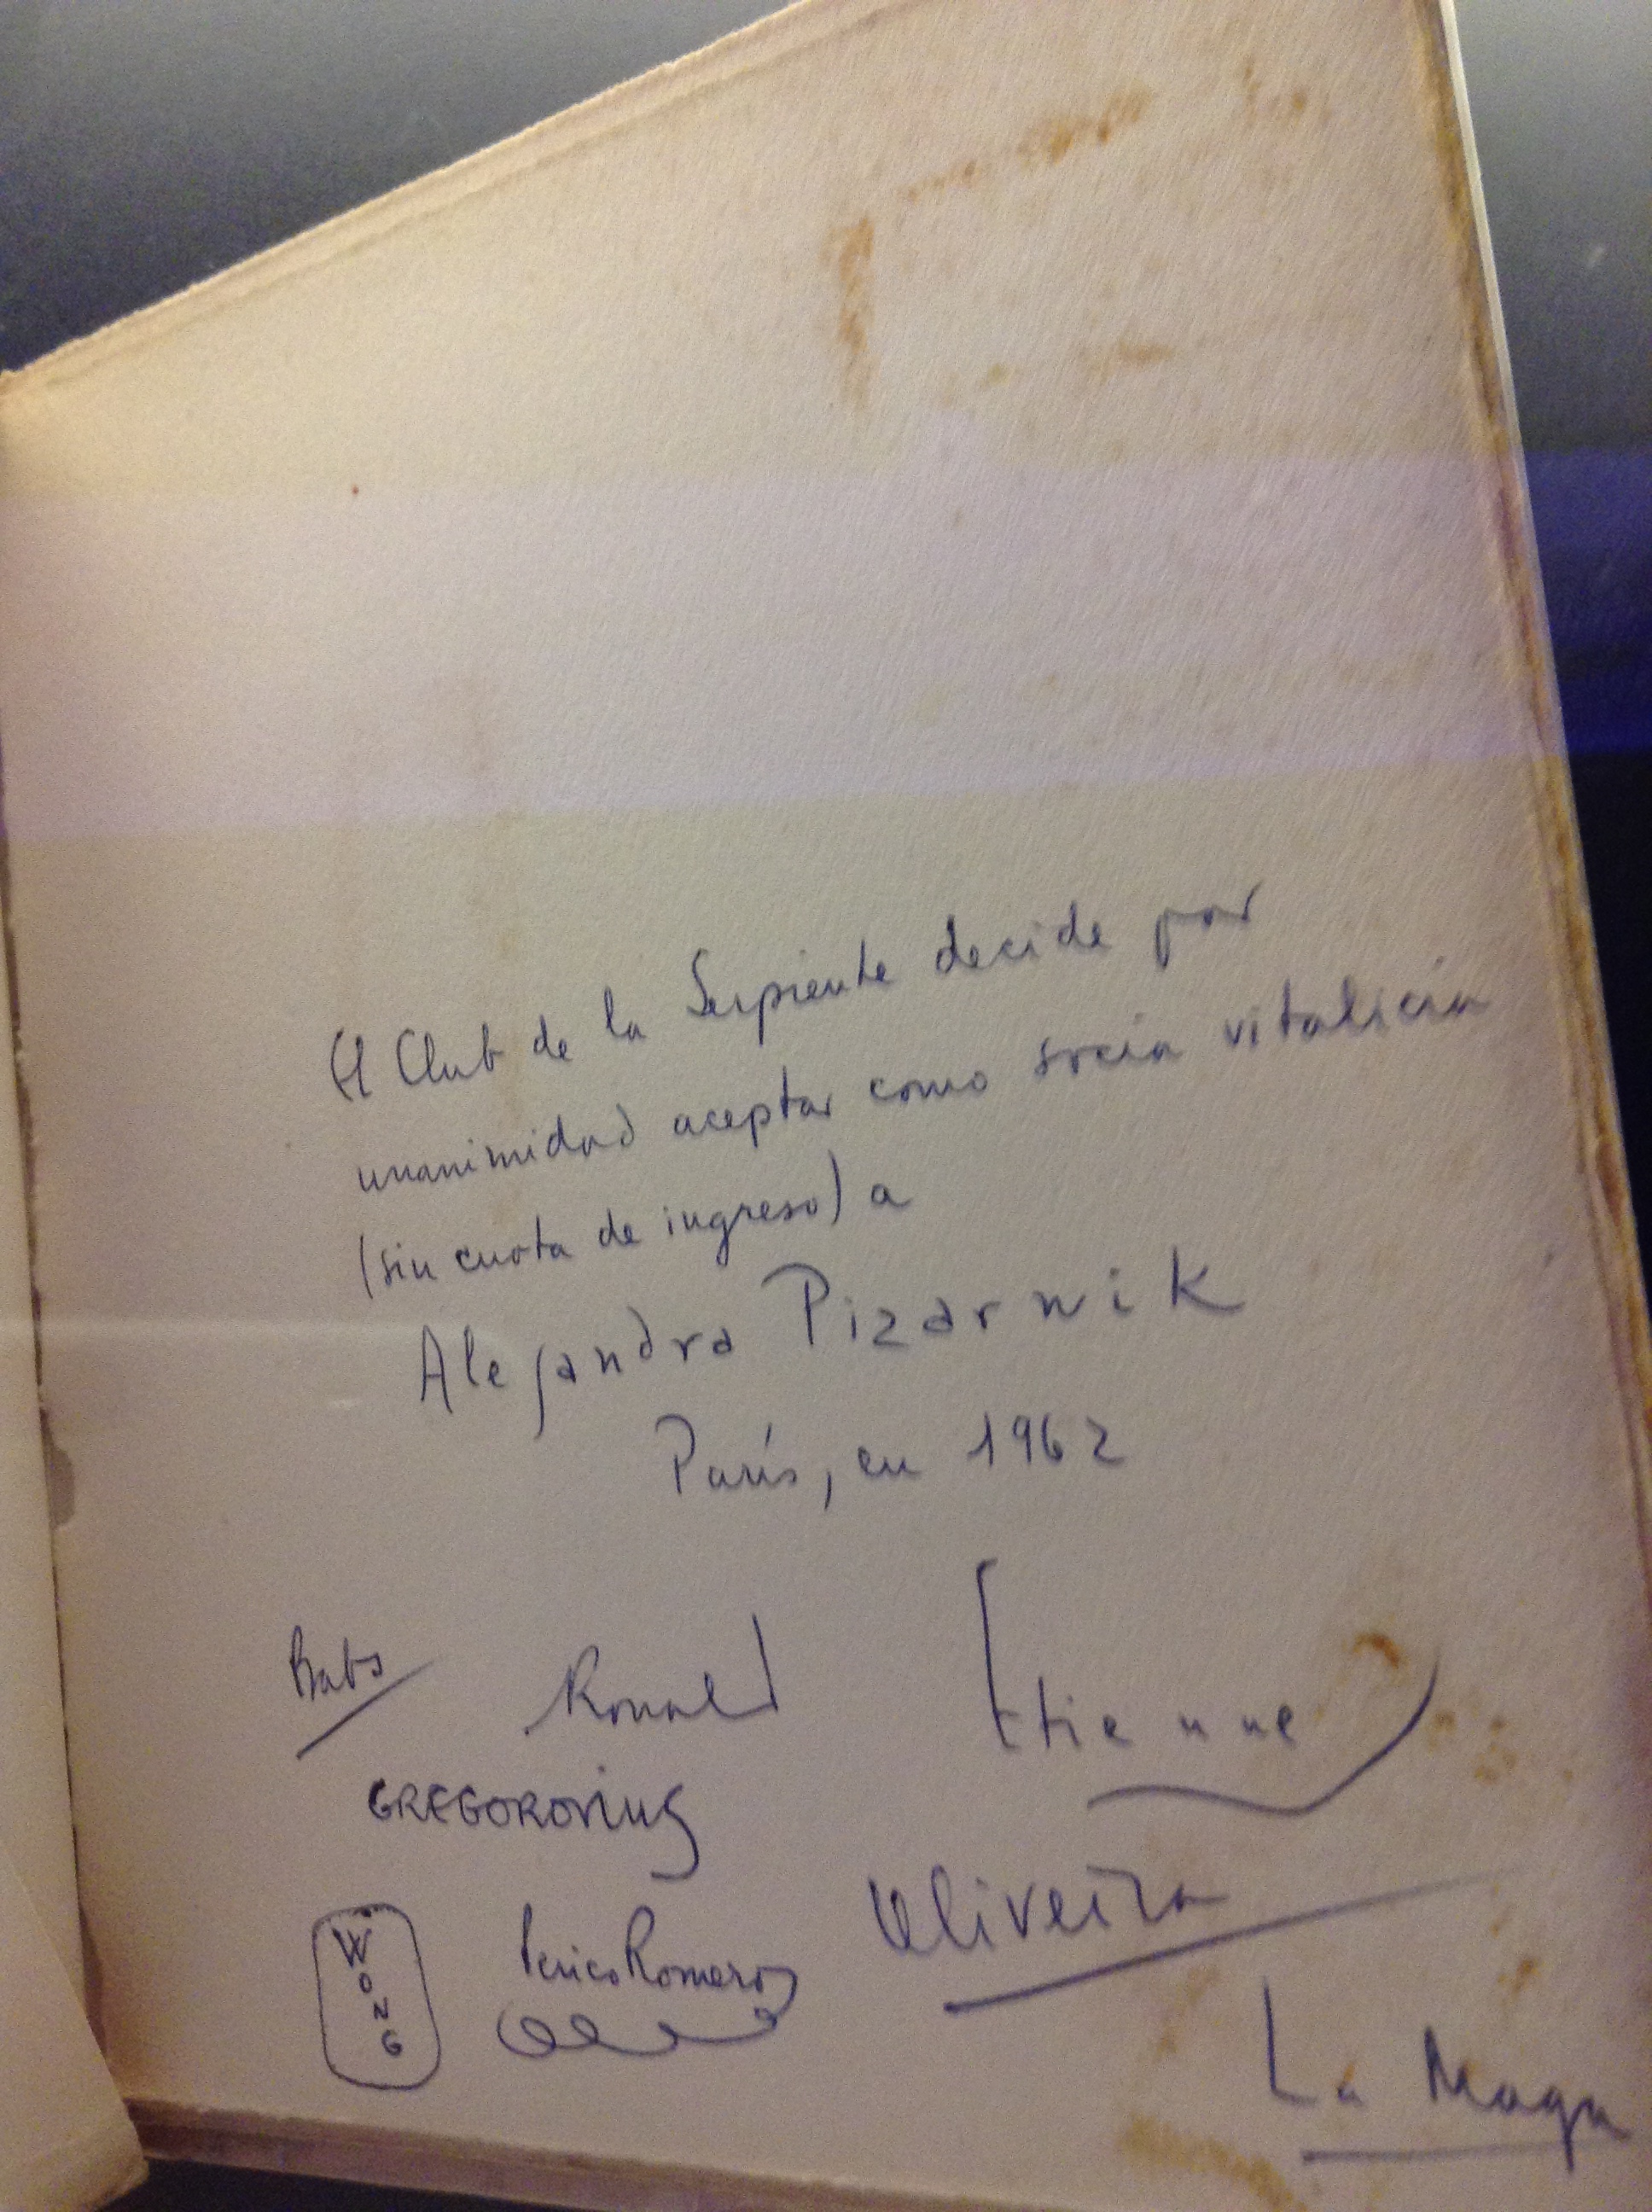 El Club de la Serpiente decide por
unanimidad aceptar como socia vitalicia
(sin cuota de ingreso) a
Alejandra Pizarnik
París, en 1962
Babs Ronald Etienne
GREGOROVIUS
Oliveira
WONG Perico Romero
La Maga